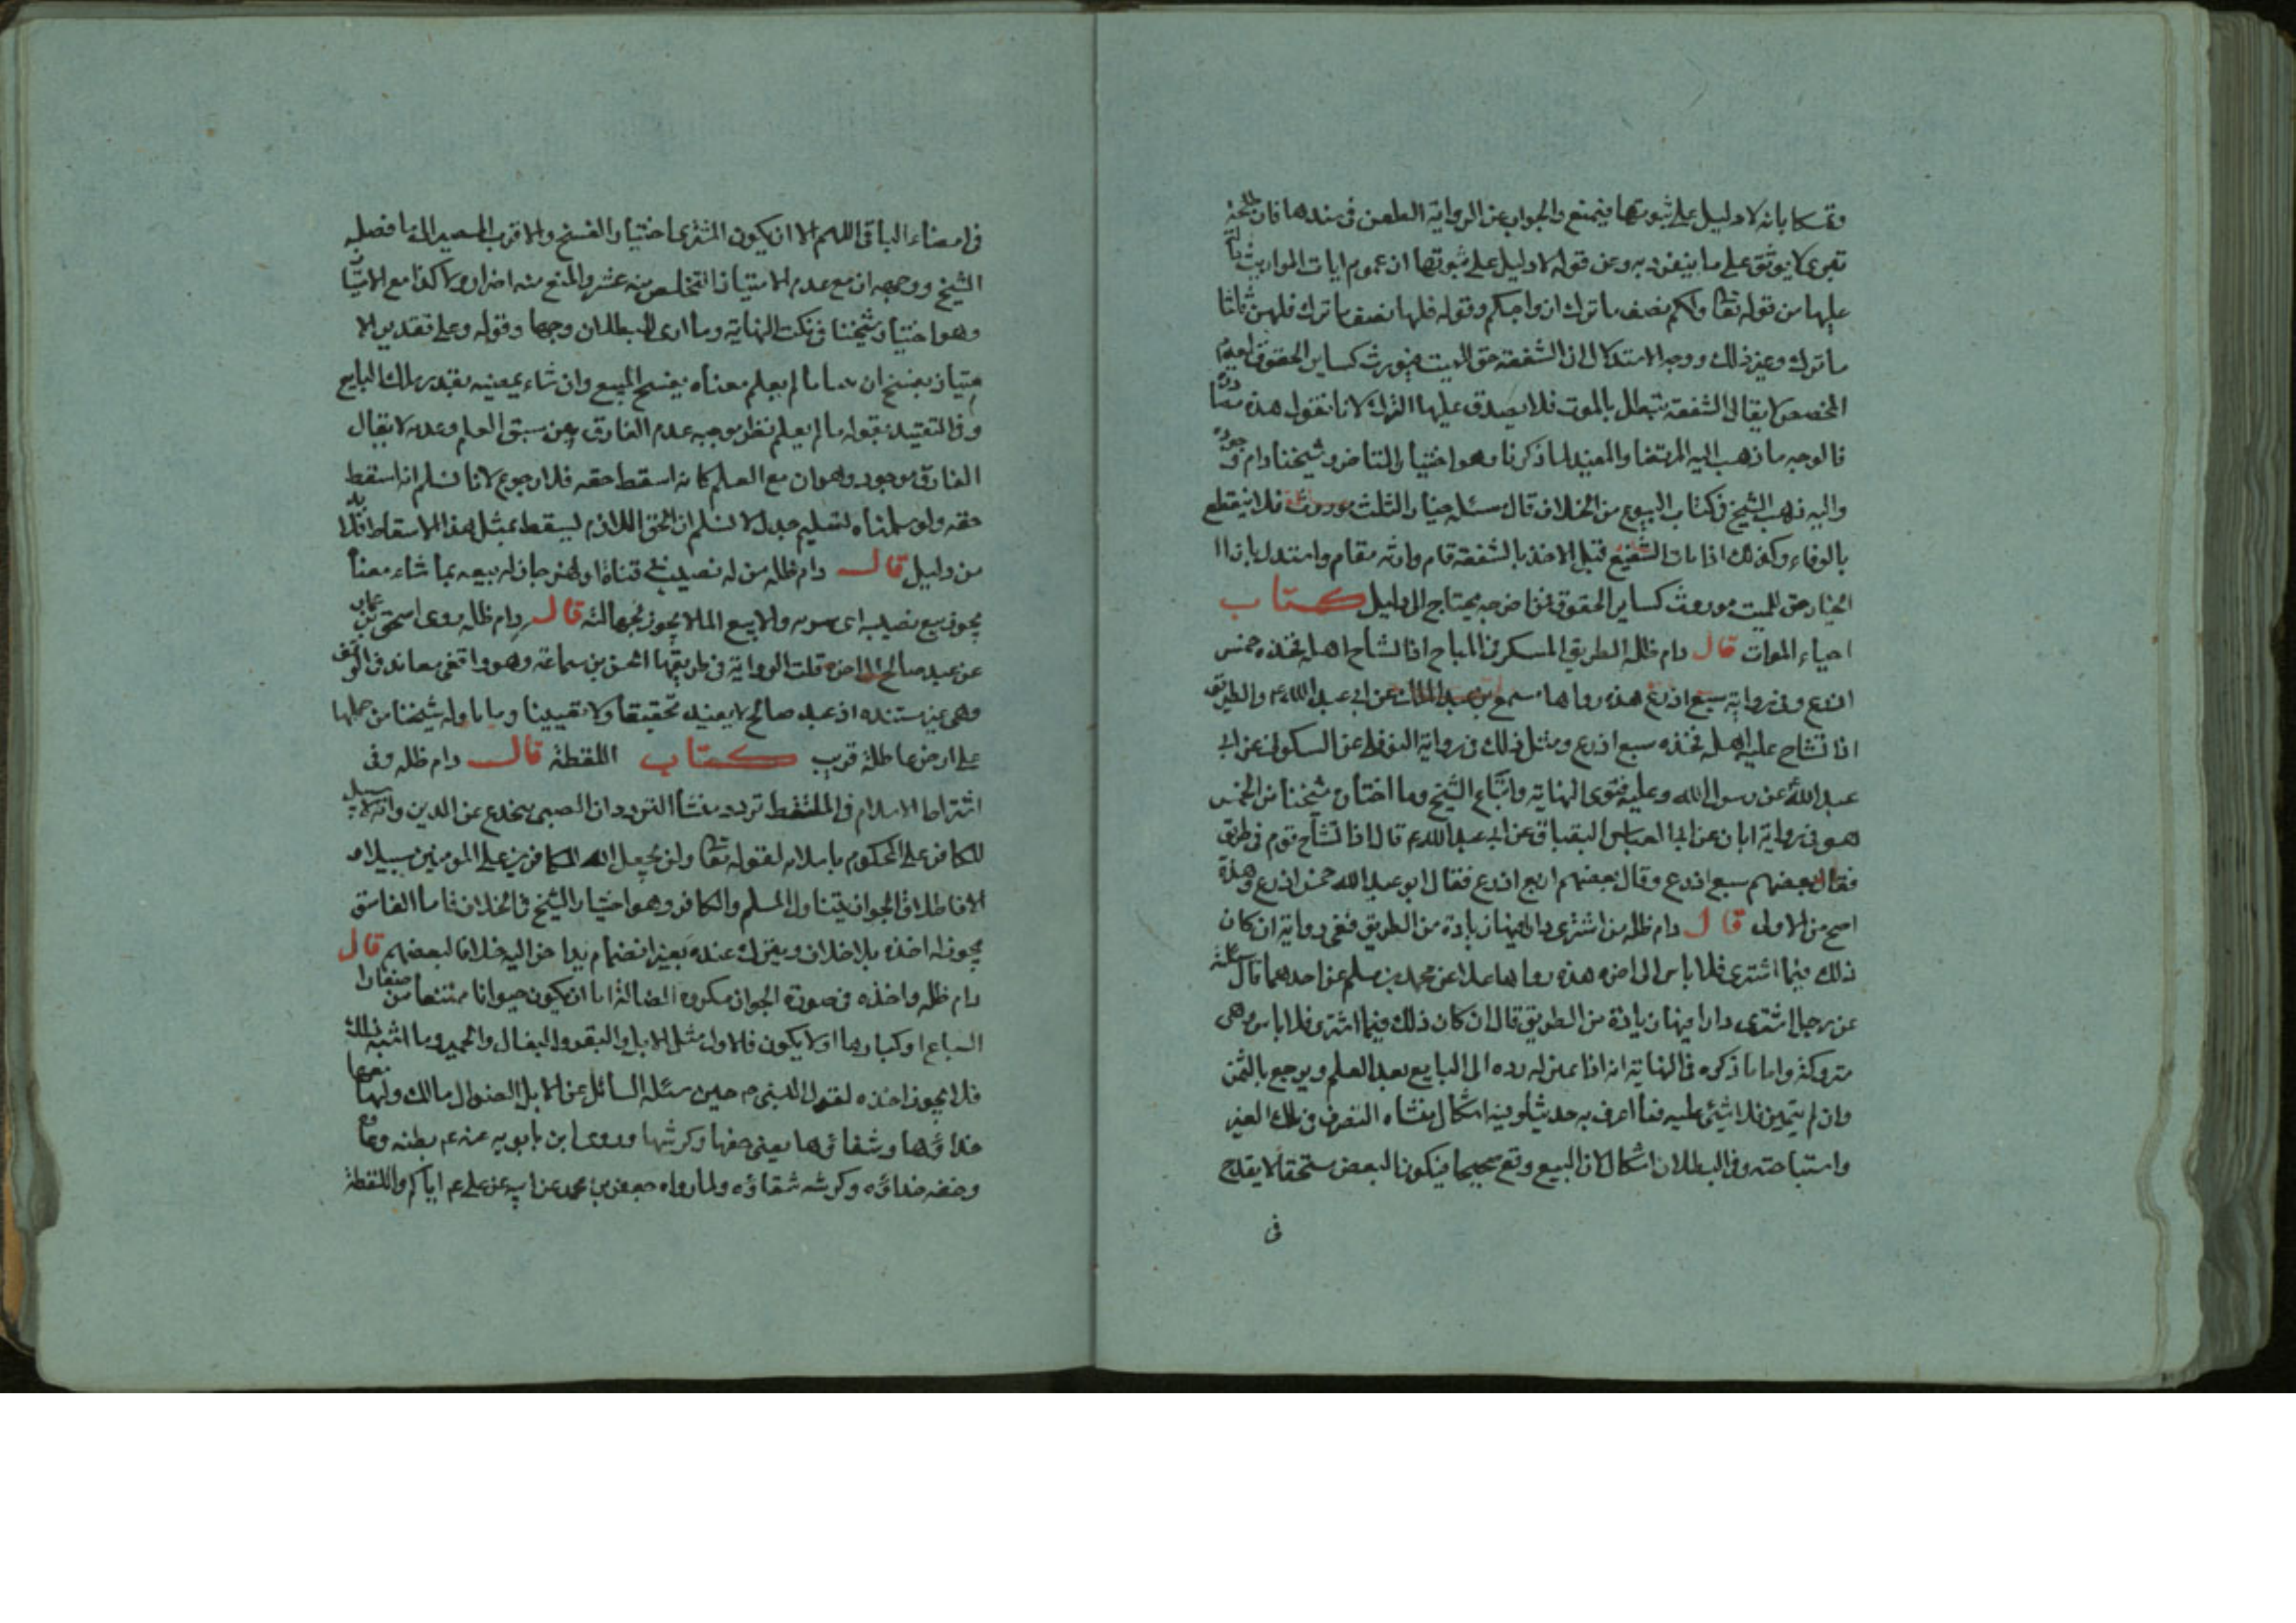 وتمسكا بانه لا دليل على ثبوتها فيمنع والجواب عن الرواية الطعن فى سندها فان طلحة
تبرى لا يوثق على ما ينفرد به وعن قوله لا دليل على ثبوتها ان عموم ايات المواريث
عليها من قوله تعا ولكم نصف ما ترك ازواجكم وقوله فلها نصف ما ترك فلهن ثلثا
ما ترك وغير ذلك ووجه الاستدلال ان الشفعة حق للميت فيورث كساير الحقوق لعدم
المخصص لا يقال الشفعة تبطل بالموت فلا يصدق عليها الترك لانا نقول هذه
فالوجه ما ذهب اليه المرتضا والمفيد لما ذكرنا وهو اختيار المتاخر وشيخنا دام
واليه ذهب الشيخ فى كتاب البيوع من الخلاف قال مسئله خيار الثلث موروث فلا ينقطع
بالوفاء وكذلك اذا مات الشفيع قبل الاخذ بالشفعة قام وارثه مقام واستدل بان ا
الخيار حق للميت موروث كساير الحقوق فمن اخرجه يحتاج الى دليل كتاب
احياء الموات قال دام ظله الطريق المسكر فى المباح اذا تشاح اهله فحده خمس
اذرع وفى رواية سبع اذرع هذه رواها مسمع بن عبد الملك عن ابى عبد الله ع والطريق
اذا تشاح عليه اهله فحده سبع اذرع ومثل ذلك فى رواية النوفلى عن السكونى عن ابى
عبد الله عن رسول الله وعليه فتوى النهاية واتباع الشيخ وما اختاره شيخنا من الخمس
هو فى رواية ابان عن ابى العباس البقباق عن ابى عبد الله ع قال اذا تشاح قوم فى طريق
فقال بعضهم سبع اذرع وقال بعضهم اربع اذرع فقال ابو عبد الله خمس اذرع وهذه
اصح من الاولى قال دام ظله من اشترى دارا فيها زيادة من الطريق ففى رواية ان كان
ذلك فيما اشترى فلا باس الى اخره هذه رواها علا عن محمد بن مسلم عن احدهما قال سئلته
عن رجل اشترى دارا فيها زيادة من الطريق قال ان كان ذلك فيما اشترى فلا باس وهى
متروكة واما ما ذكره فى النهاية انه اذا تميز له رده الى البايع بعد العلم ويرجع بالثمن
وان لم يتميز فلا شيئ عليه فما اعرف به حديثا وفيه اشكال منشاه التصرف فى ملك الغير
واستباحته وفى البطلان اشكال لان البيع وقع صحيحا فيكون البعض مستحقا لا يقدح
فى
فى امضاء الباقى اللهم الا ان يكون المشترى اختيار الفسخ والاقرب المصير الى ما فصله
الشيخ ووجهه ان مع عدم الامتياز التخلص منه عسر والمنع منه اضرار ولا كذا مع الامتياز
وهو اختيار شيخنا فى نكت النهاية وما ارى للبطلان وجها وقوله وعلى تقدير الا
متياز يفسخ ان شا ما لم يعلم معناه يفسخ المبيع وان شاء يمضيه بقدر ملك البايع
وفى التقييد بقوله ما لم يعلم نظر موجبه عدم الفارق بين سبق العلم وعدمه لا يقال
الفارق موجود وهو ان مع العلم كانه اسقط حقه فلا رجوع لانا نسلم انه اسقط
حقه ولو سلمناه تسليم جدل لا نسلم ان الحق اللازم يسقط بمثل هذا الاسقاط فلا بد
من دليل قال دام ظله من له نصيب فى قناة او نهر جاز له بيعه بما شاء معناه
يجوز بيع نصيبه اى سهمه والا بيع الما لا يجوز لجهالته قال دام ظله روى اسحق بن عمار
عن عبد صالح الى اخره قلت الرواية فى طريقها الحسن بن سماعة وهو واقفى معاند فى الوقف
وهى غير مستنده اذ عبد صالح لا يفيد تحقيقا ولا تقييدا وما تاوله شيخنا من حملها
على ارض عاطلة قريب كتاب اللقطة قال دام ظله وفى
اشتراط الاسلام فى الملتقط تردد منشأ التردد ان الصبى ينخدع عن الدين وانه لا سبيل
للكافر على المحكوم باسلامه لقوله تعا ولن يجعل الله للكافرين على المومنين سبيلا و
الاطلاق الجواز يتناول المسلم والكافر وهو اختيار الشيخ فى الخلاف فاما الفاسق
يجوز له اخذه بلا خلاف ويترك عنده بغير انضمام يد اخر اليه خلافا لبعضهم قال
دام ظله واخذه فى صورة الجواز مكروه الضالة اما ان يكون حيوانا ممتنعا من صغار
السباع او كبارها او لا يكون فالاول مثل الابل والبقر والبغال والحمير وما اشبه ذلك
فلا يجوز اخذه لقول النبى ص حين سئله السائل عن الابل الضوال مالك ولها معها
حذاؤها وسقاؤها يعنى خفها وكرشها وروى ابن بابويه عنه ع بطنه وعاؤه
وخفه حذاؤه وكرشه سقاؤه ولما رواه جعفر بن محمد عن ابيه عن على ع اياكم واللقطة